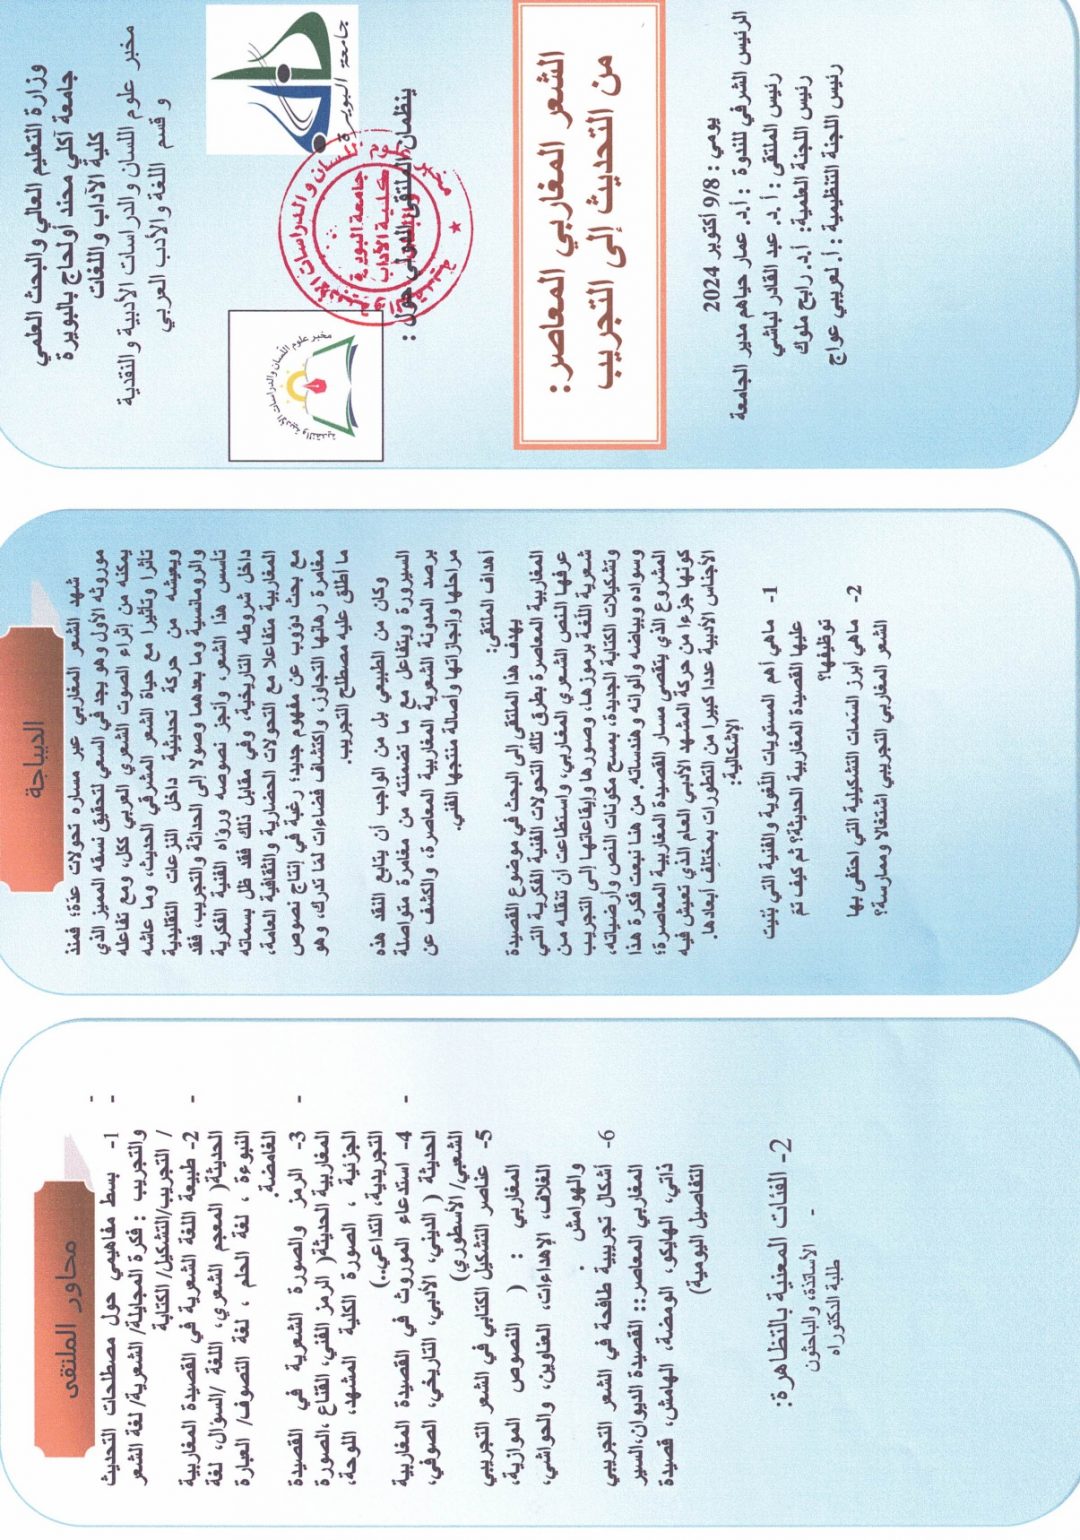 وزارة التعليم العالي والبحث العلمي
جامعة أكلي محند أولحاج بالبويرة
كلية الآداب واللغات
مخبر علوم اللسان والدراسات الأدبية والنقدية
و قسم اللغة والأدب العربي
جامعة البويرة
مخبر علوم اللسان والدراسات الأدبية والنقدية
جامعة البويرة
كلية الآداب
ينظمان الملتقى الدولي حول :
الشعر المغاربي المعاصر:
من التحديث إلى التجريب
يومي : 9/8 أكتوبر 2024
الرئيس الشرفي للندوة : أ.د. عمار حياهم مدير الجامعة
رئيس الملتقى : أ.د. عبد القادر لباشي
رئيس اللجنة العلمية: أ.د. رابح ملوك
رئيس اللجنة التنظيمية : أ.لعريبي عواج
الديباجة
شهد الشعر المغاربي عبر مساره تحولات عدّة؛ فمنذ
موروثه الأول وهو يجد في السعي لتحقيق نسقه المميز الذي
يمكنه من إثراء الصوت الشعري العربي ككل، ومع تفاعله
تأثرا وتأثيرا مع حياة الشعر المشرقي الحديث، وما عاشه
ويعيشه من حركة تحديثية داخل النزعات التقليدية
والرومانسية وما بعدهما وصولا إلى الحداثة والتجريب، فقد
تأسس هذا الشعر، وأنجز نصوصه ورؤاه الفنية الفكرية
داخل شروطه التاريخية، وفي مقابل ذلك فقد ظل بسماته
المغاربية متفاعلا مع التحولات الحضارية والثقافية العامة،
مع بحث دؤوب عن مفهوم جديد؛ رغبة في إنتاج نصوص
مغامرة رهانها التجاوز، واكتشاف فضاءات لمّا تدرك، وهو
ما أطلق عليه مصطلح التجريب.
وكان من الطبيعي بل من الواجب أن يتابع النقد هذه
السيرورة ويتفاعل مع ما تضمنته من مغامرة متواصلة
برصد المدونة الشعرية المغاربية المعاصرة، والكشف عن
مراحلها وإنجازاتها وأصالة منتجها الفني.
أهداف الملتقى:
يهدف هذا الملتقى إلى البحث في موضوع القصيدة
المغاربية المعاصرة بطرق تلك التحولات الفنية الفكرية التي
عرفها النص الشعري المغاربي، واستطاعت أن تنقله من
شعرية اللغة برموزها، وصورها وإيقاعاتها إلى التجريب
وتشكيلات الكتابة الجديدة، بمسح مكونات النص وأرضياته،
وسواده وبياضه وألوانه وهندساته. من هنا نبعت فكرة هذا
المشروع الذي يتقصى مسار القصيدة المغاربية المعاصرة؛
كونها جزءا من حركة المشهد الأدبي العام الذي تعيش فيه
الأجناس الأدبية عددا كبيرا من التطورات بمختلف أبعادها.
الإشكالية:
1- ماهي أهم المستويات اللغوية والفنية التي بنيت
عليها القصيدة المغاربية الحديثة؟ ثم كيف تمّ
توظيفها؟
2- ماهي أبرز السّمات التشكيلية التي احتفى بها
الشعر المغاربي التجريبي اشتغالا وممارسة؟
محاور الملتقى
1- بسط مفاهيمي حول مصطلحات التحديث
والتجريب : فكرة المجايلة/ الشعرية/ لغة الشعر
/ التجريب/التشكيل/ الكتابة
2- طبيعة اللغة الشعرية في القصيدة المغاربية
الحديثة( المعجم الشعري، اللغة /السؤال، لغة
النبوءة ، لغة الحلم ، لغة التصوف/ العبارة
الغامضة.
3- الرمز والصورة الشعرية في القصيدة
المغاربية الحديثة( الرمز الفني، القناع ،الصورة
الجزئية ، الصورة الكلية المشهد، اللوحة،
التجريدية، التداعي..)
4- استدعاء الموروث في القصيدة المغاربية
الحديثة ( الديني، الأدبي، التاريخي، الصوفي،
الشعبي/ الأسطوري)
5- عناصر التشكيل الكتابي في الشعر التجريبي
المغاربي : ( النصوص /موازية،
الغلاف، الإهداءات، العناوين، والحواشي،
والهوامش .
6- أشكال تجريبية طافحة في الشعر التجريبي
المغاربي المعاصر:: القصيدة الديوان،السير
ذاتي، الهايكو، الومضة، الهامش، قصيدة
التفاصيل اليومية)
2- الفئات المعنية بالتظاهرة:
- الأساتذة، والباحثون
طلبة الدكتوراه